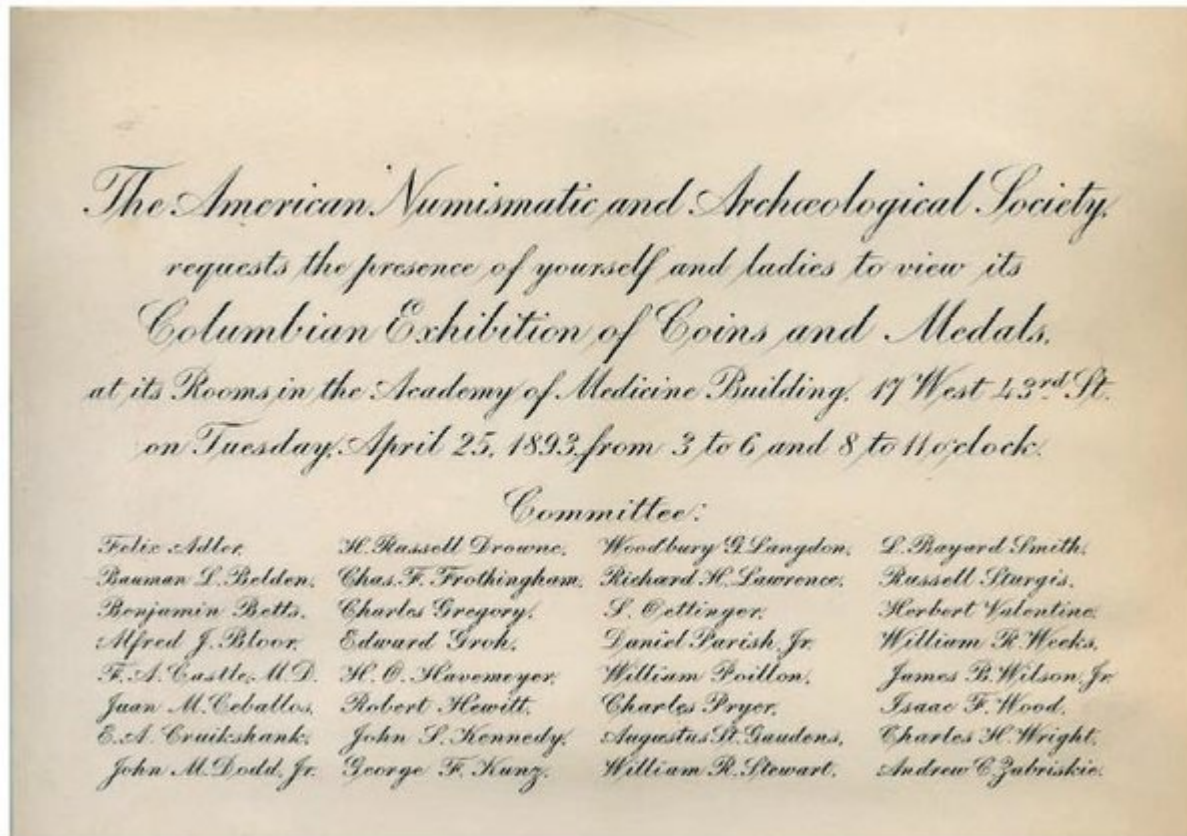 The American Numismatic and Archæological Society,
requests the presence of yourself and ladies to view its
Columbian Exhibition of Coins and Medals,
at its Rooms in the Academy of Medicine Building, 17 West 43rd St.
on Tuesday, April 25, 1893, from 3 to 6 and 8 to 11 o'clock.
Committee:
Felix Adler,
Bauman L. Belden,
Benjamin Betts,
Alfred J. Bloor,
F. A. Castle, M. D.
Juan M. Ceballos,
E. A. Cruikshank,
John M. Dodd, Jr.
H. Russell Drowne,
Chas. F. Frothingham,
Charles Gregory,
Edward Groh,
H. O. Havemeyer,
Robert Hewitt,
John S. Kennedy,
George F. Kunz,
Woodbury G. Langdon,
Richard H. Lawrence,
S. Oettinger,
Daniel Parish, Jr.
William Poillon,
Charles Pryer,
Augustus St. Gaudens,
William R. Stewart,
L. Bayard Smith,
Russell Sturgis,
Herbert Valentine,
William R. Weeks,
James B. Wilson, Jr.
Isaac F. Wood,
Charles H. Wright,
Andrew C. Zabriskie.